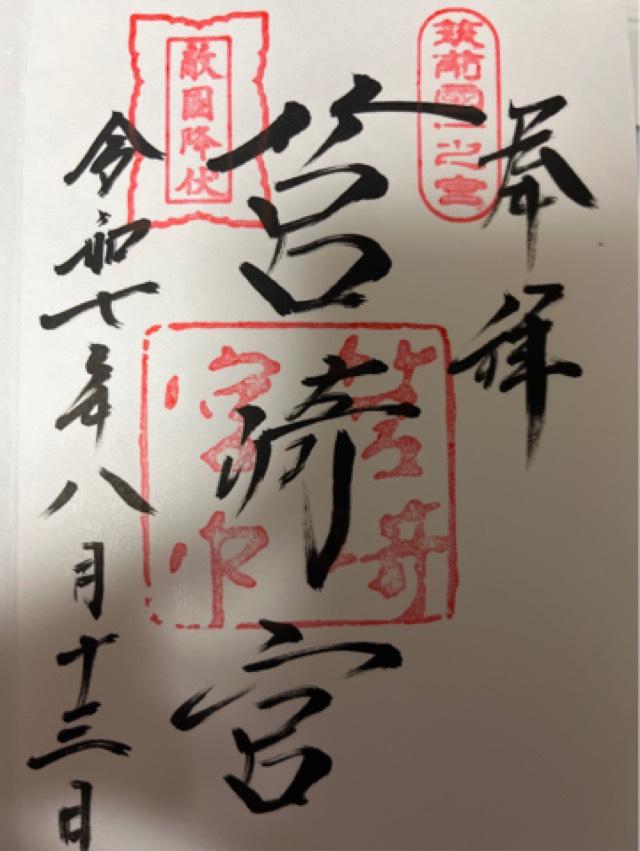 奉拝
筑前國一之宮
筥崎宮
筥崎宮印
敵國降伏
令和七年八月十三日